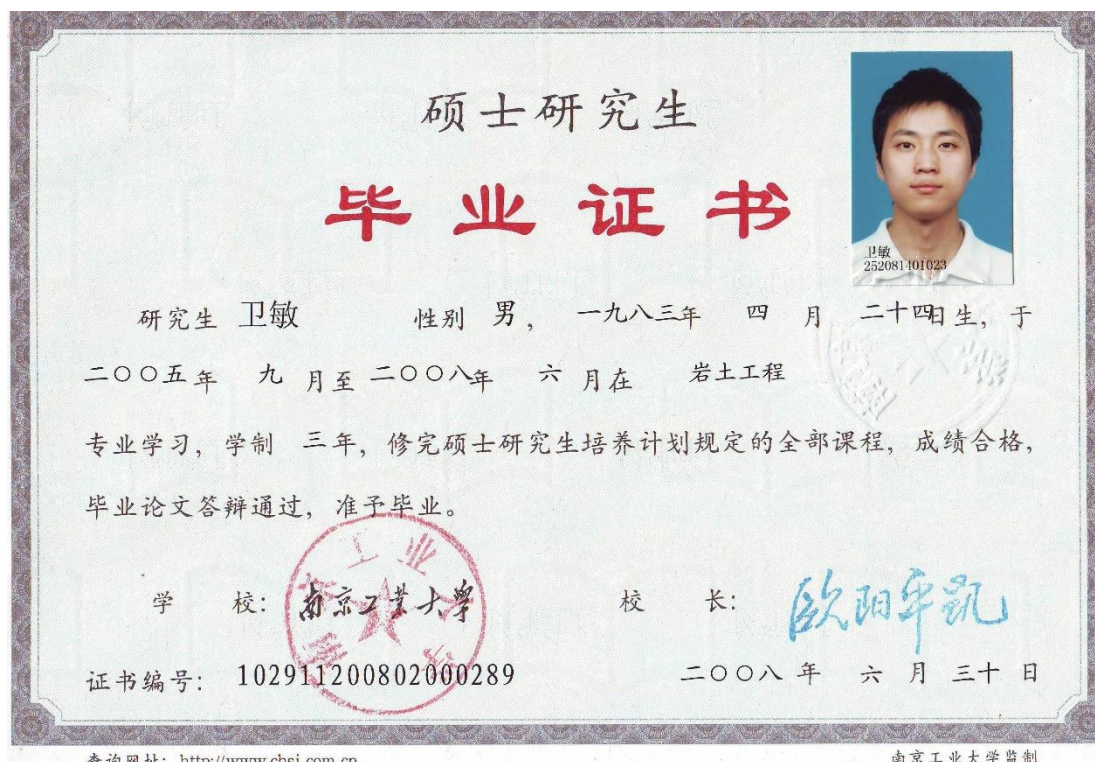 硕士研究生
毕业证书
卫敏
252081401023
研究生 卫敏 性别 男, 一九八三年 四 月 二十四日生, 于
二〇〇五年 九 月至 二〇〇八年 六 月在 岩土工程
专业学习, 学制 三年, 修完硕士研究生培养计划规定的全部课程, 成绩合格,
毕业论文答辩通过, 准予毕业。
学 校: 南京工业大學 校 长: 欧阳平凯
证书编号: 102911200802000289 二〇〇八 年 六 月 三十 日
查询网址: http://www.chsi.com.cn 南京工业大学监制